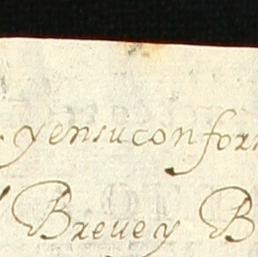 yensuconfor
Breuey B